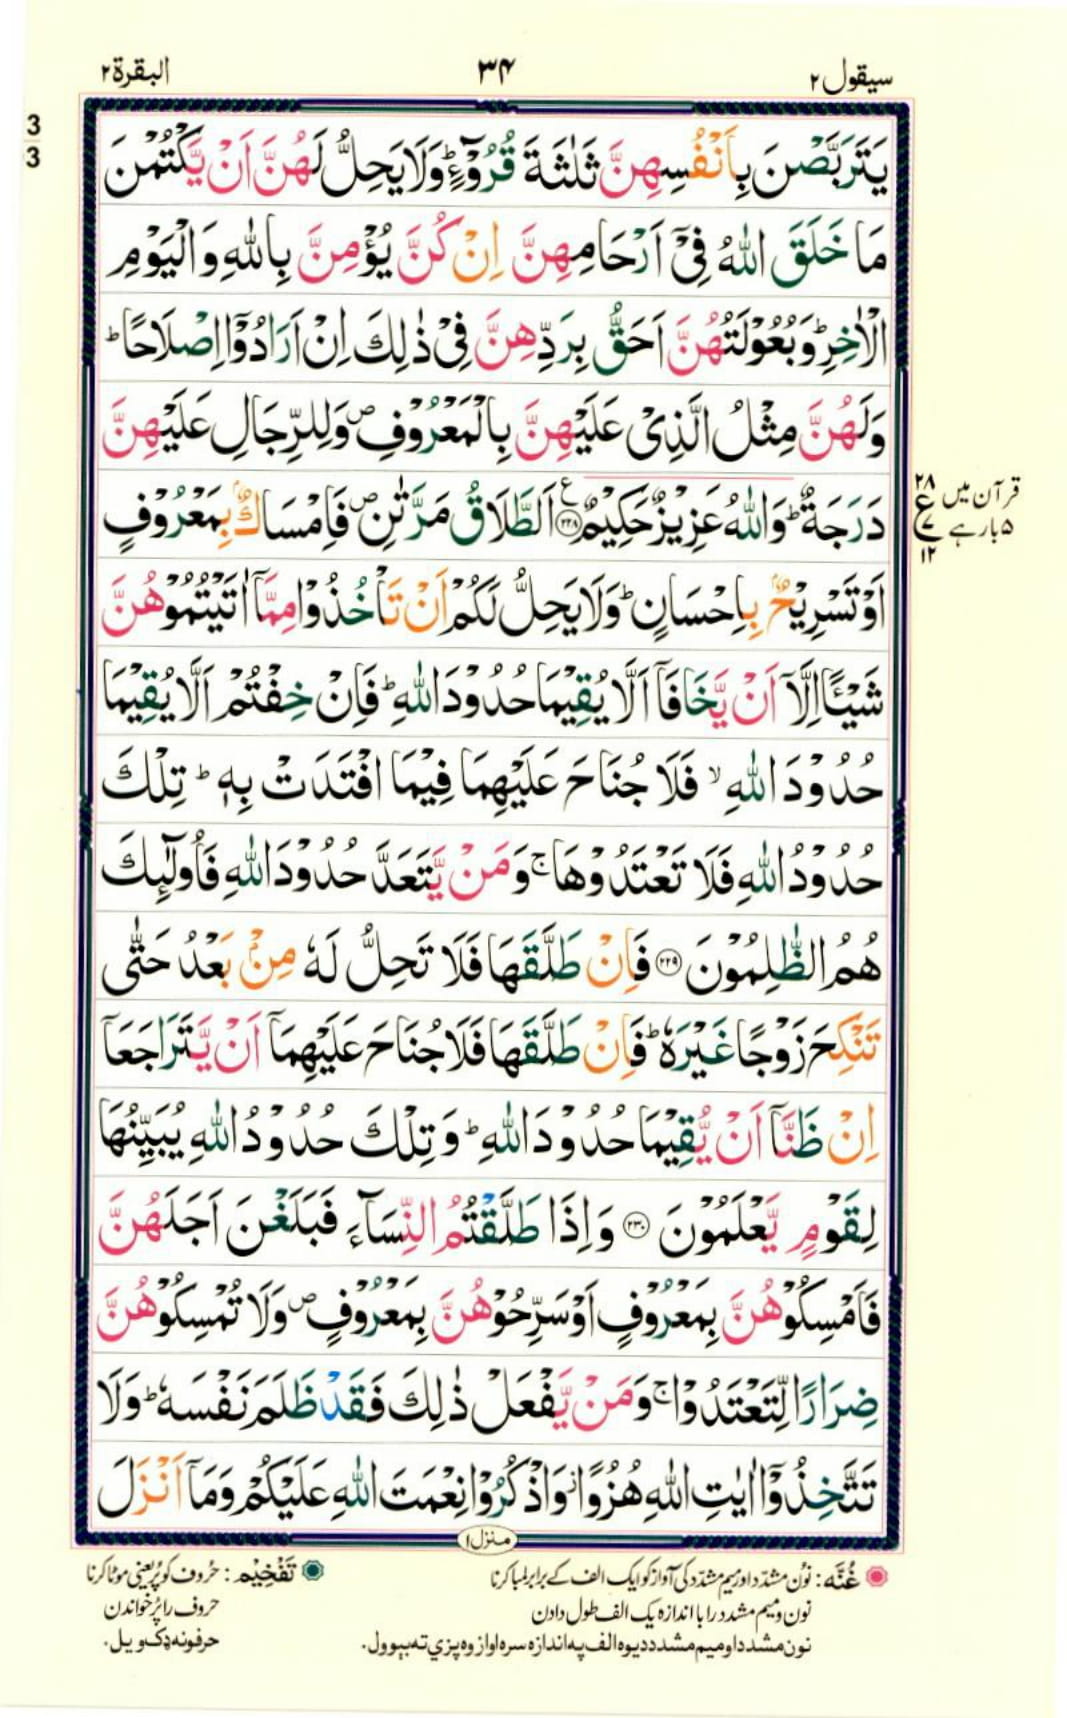 سيقول ٢
٣۴
البقرة ٢
3
3
يَتَرَبَّصْنَ بِاَنْفُسِهِنَّ ثَلٰثَةَ قُرُوْٓءٍؕ وَلَا يَحِلُّ لَهُنَّ اَنْ يَّكْتُمْنَ
مَا خَلَقَ اللّٰهُ فِىْٓ اَرْحَامِهِنَّ اِنْ كُنَّ يُؤْمِنَّ بِاللّٰهِ وَالْيَوْمِ
الْاٰخِرِؕ وَبُعُوْلَتُهُنَّ اَحَقُّ بِرَدِّهِنَّ فِىْ ذٰلِكَ اِنْ اَرَادُوْٓا اِصْلَاحًاؕ
وَلَهُنَّ مِثْلُ الَّذِىْ عَلَيْهِنَّ بِالْمَعْرُوْفِ۪ وَلِلرِّجَالِ عَلَيْهِنَّ
دَرَجَةٌؕ وَاللّٰهُ عَزِيْزٌ حَكِيْمٌ ﴿٢٢٨﴾ ع اَلطَّلَاقُ مَرَّتٰنِ۪ فَاِمْسَاكٌۢ بِمَعْرُوْفٍ
قرآن میں ۵ بار ہے
٢٨ ع ٧ ١٢
اَوْ تَسْرِيْحٌۢ بِاِحْسَانٍؕ وَلَا يَحِلُّ لَكُمْ اَنْ تَاْخُذُوْا مِمَّآ اٰتَيْتُمُوْهُنَّ
شَيْـًٔا اِلَّآ اَنْ يَّخَافَآ اَلَّا يُقِيْمَا حُدُوْدَ اللّٰهِؕ فَاِنْ خِفْتُمْ اَلَّا يُقِيْمَا
حُدُوْدَ اللّٰهِۙ فَلَا جُنَاحَ عَلَيْهِمَا فِيْمَا افْتَدَتْ بِهٖؕ تِلْكَ
حُدُوْدُ اللّٰهِ فَلَا تَعْتَدُوْهَاۚ وَمَنْ يَّتَعَدَّ حُدُوْدَ اللّٰهِ فَاُولٰٓئِكَ
هُمُ الظّٰلِمُوْنَ ﴿٢٢٩﴾ فَاِنْ طَلَّقَهَا فَلَا تَحِلُّ لَهٗ مِنْۢ بَعْدُ حَتّٰى
تَنْكِحَ زَوْجًا غَيْرَهٗؕ فَاِنْ طَلَّقَهَا فَلَا جُنَاحَ عَلَيْهِمَآ اَنْ يَّتَرَاجَعَآ
اِنْ ظَنَّآ اَنْ يُّقِيْمَا حُدُوْدَ اللّٰهِؕ وَتِلْكَ حُدُوْدُ اللّٰهِ يُبَيِّنُهَا
لِقَوْمٍ يَّعْلَمُوْنَ ﴿٢٣٠﴾ وَاِذَا طَلَّقْتُمُ النِّسَآءَ فَبَلَغْنَ اَجَلَهُنَّ
فَاَمْسِكُوْهُنَّ بِمَعْرُوْفٍ اَوْ سَرِّحُوْهُنَّ بِمَعْرُوْفٍ۪ وَلَا تُمْسِكُوْهُنَّ
ضِرَارًا لِّتَعْتَدُوْاۚ وَمَنْ يَّفْعَلْ ذٰلِكَ فَقَدْ ظَلَمَ نَفْسَهٗؕ وَلَا
تَتَّخِذُوْٓا اٰيٰتِ اللّٰهِ هُزُوًا٘ وَّاذْكُرُوْا نِعْمَتَ اللّٰهِ عَلَيْكُمْ وَمَآ اَنْزَلَ
منزل ١
غُنَّه: نُون مشدّد اور میم مشدّد کی آواز کو ایک الف کے برابر لمبا کرنا
نون و میم مشدد را با اندازه یک الف طول دادن
نون مشدد او میم مشدد دیوه الف په اندازه سره اواز وه پزې ته بېوول.
تَفْخِيْم: حُروف کو پُر یعنی موٹا کرنا
حروف را پُر خواندن
حرفونه ډک ویل.